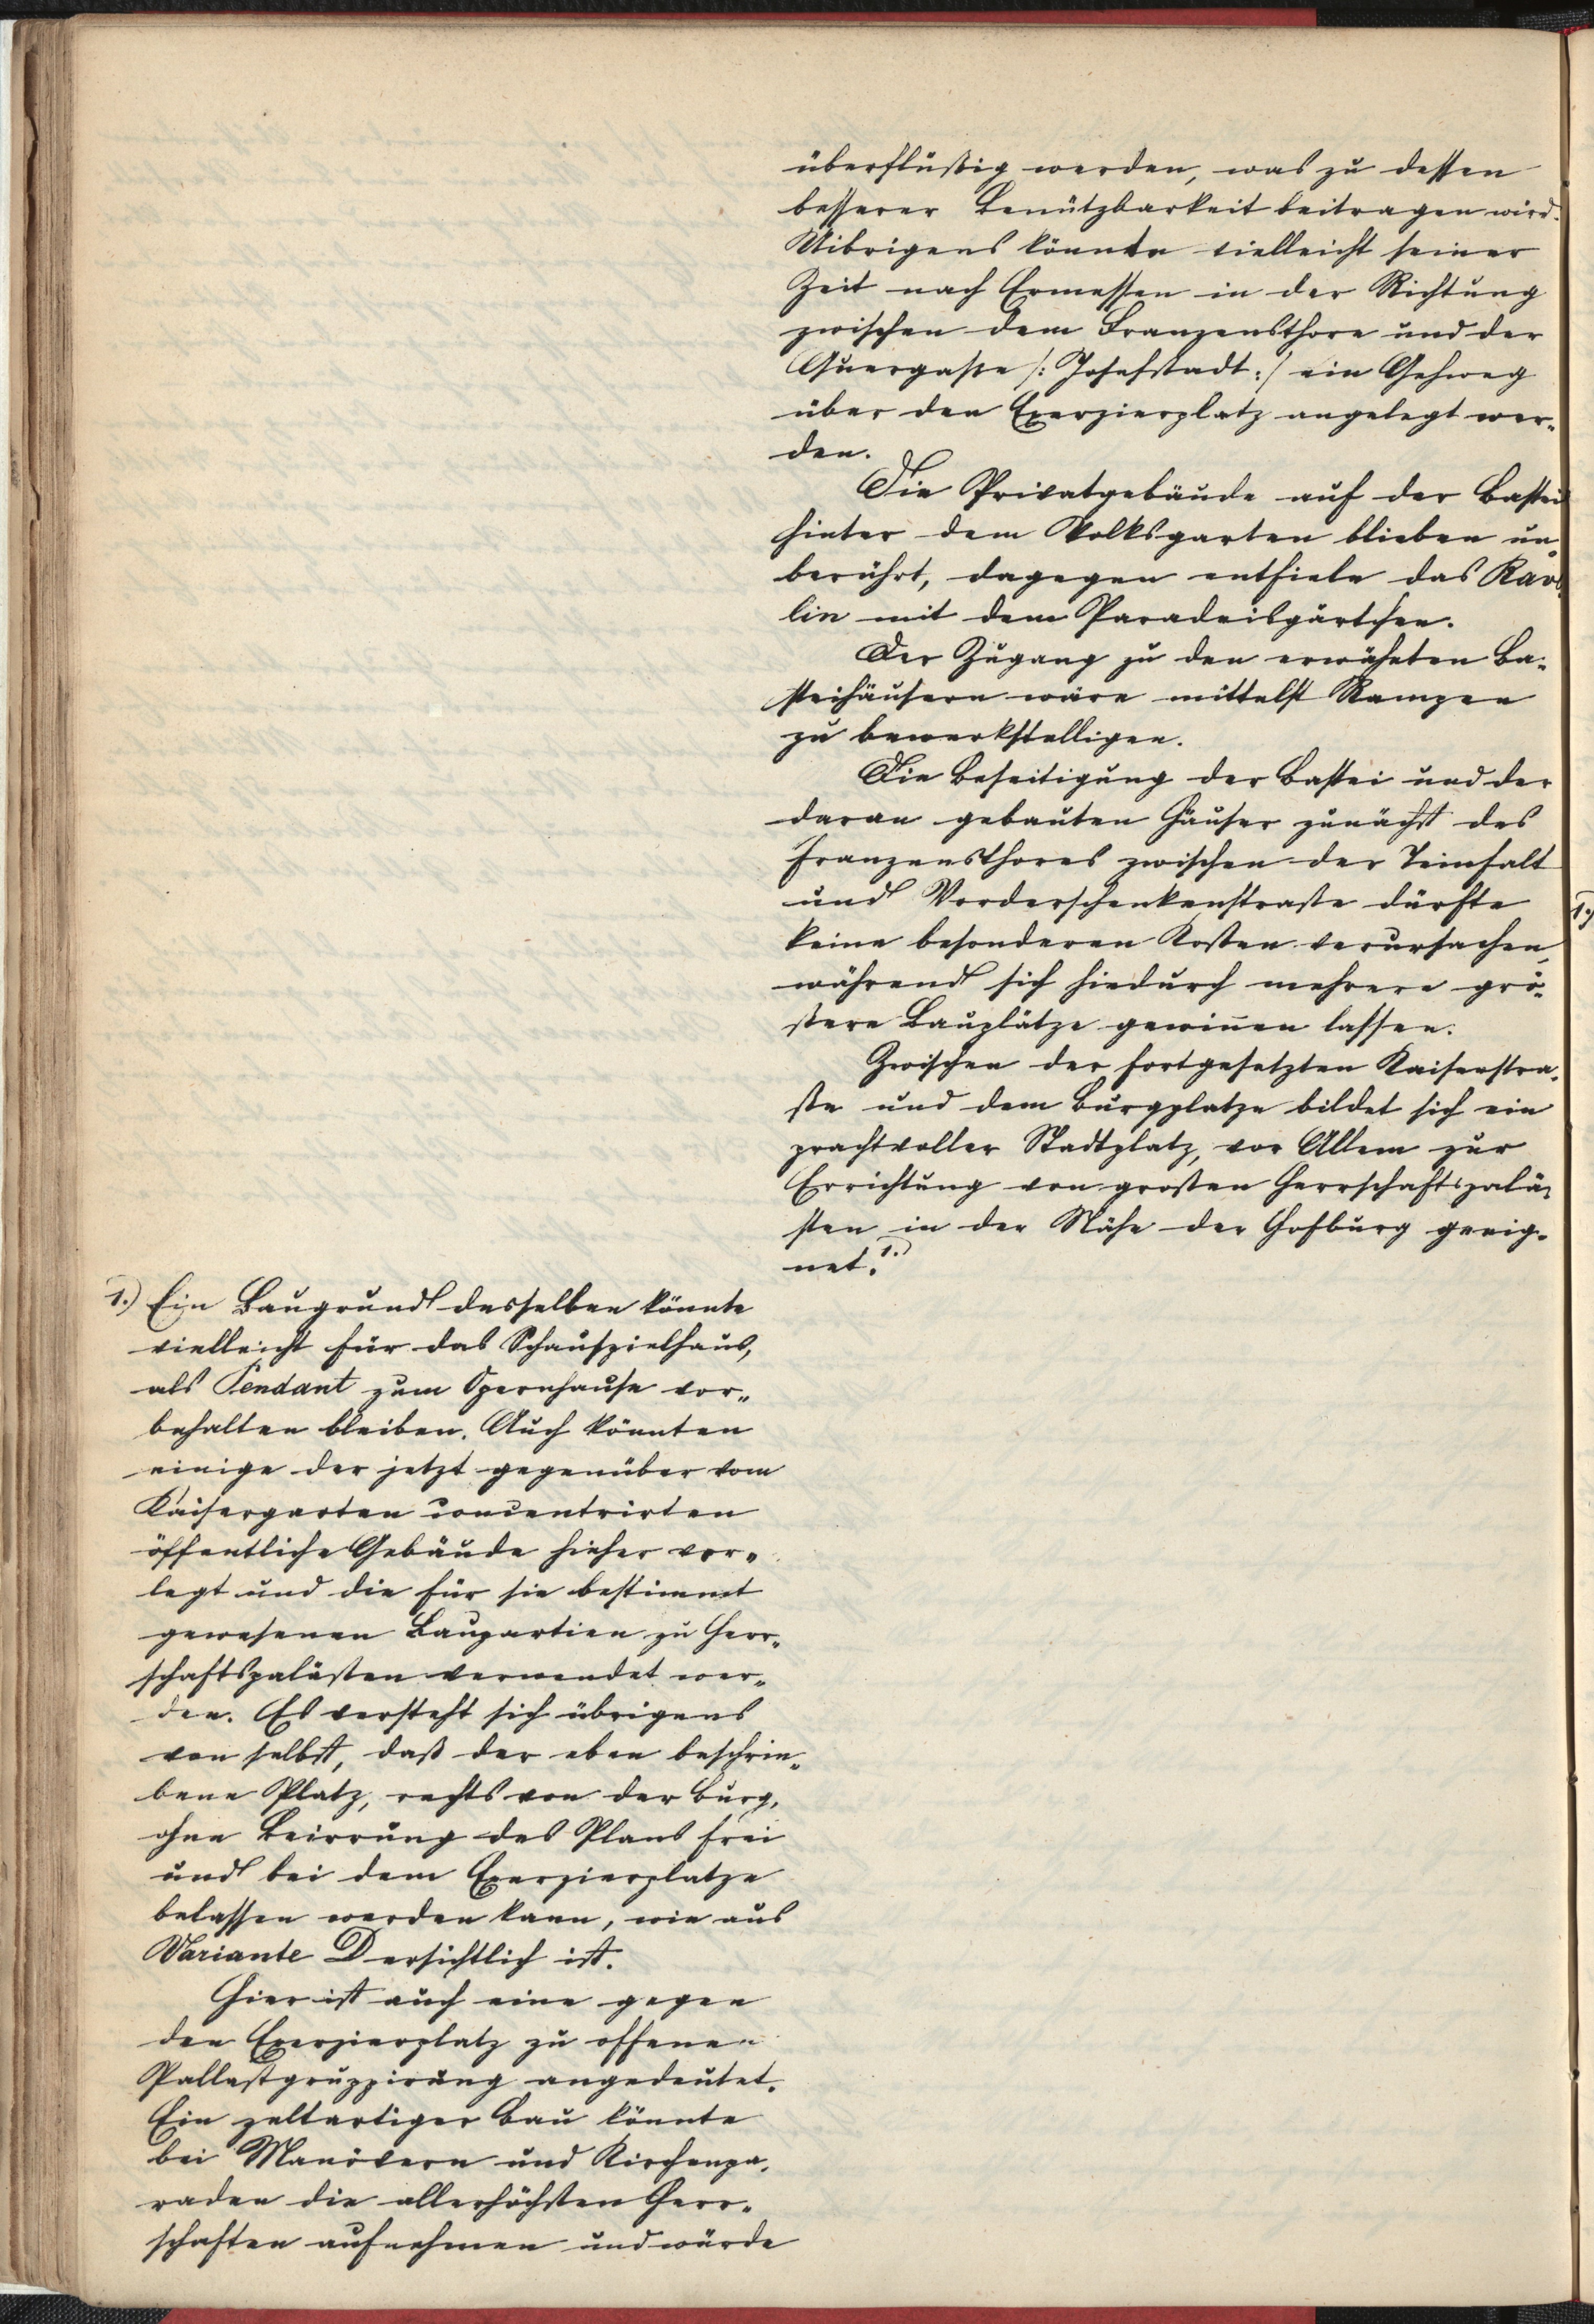 überflüßig werden, was zu dessen
besserer Benützbarkeit beitragen wird.
Uibrigens könnte vielleicht seiner
Zeit nach Ermessen in der Richtung
zwischen dem Franzensthore und der
Quergasse /: Josefstadt :/ ein Gehweg
über den Exerzierplatz angelegt wer„
den.
Die Privatgebäude auf der Bastei
hinter dem Volksgarten blieben un„
berührt, dagegen entfiele das Rave„
lin mit dem Paradeisgärtchen.
Der Zugang zu den erwähnten Ba„
steihäusern wäre mittelst Rampen
zu bewerkstelligen.
Die Beseitigung der Bastei und der
daran gebauten Häuser zunächst des
Franzensthores zwischen der Teinfalt
und Vorderschenkenstraße dürfte
keine besonderen Kosten verursachen,
während sich hiedurch mehrere grö„
ßere Bauplätze gewinnen lassen.
Zwischen der fortgesetzten Kaiserstra„
ße und dem Burgplatze bildet sich ein
prachtvoller Stadtplatz, vor Allem zur
Errichtung von großen Herrschaftspalä„
sten in der Nähe der Hofburg geeig„
net. 1.)
1.) Ein Baugrund desselben könnte
vielleicht für das Schauspielhaus,
als Pendant zum Opernhause vor„
behalten bleiben. Auch könnten
einige der jetzt gegenüber vom
Kaisergarten concentrirten
öffentliche Gebäude hieher ver„
legt und die für sie bestimmt
gewesenen Baupartien zu Herr„
schaftspalästen verwendet wer„
den. Es versteht sich übrigens
von selbst, daß der eben beschrie„
bene Platz, rechts von der Burg,
ohne Beirrung des Plans frei
und bei dem Exerzierplatze
belassen werden kann, wie aus
Variante D ersichtlich ist.
Hier ist auch eine gegen
den Exerzierplatz zu offene
Pallastgruppirung angedeutet.
Ein zeltartiger Bau könnte
bei Manövern und Kirchenpa„
raden die allerhöchsten Herr„
schaften aufnehmen und würde
1.)